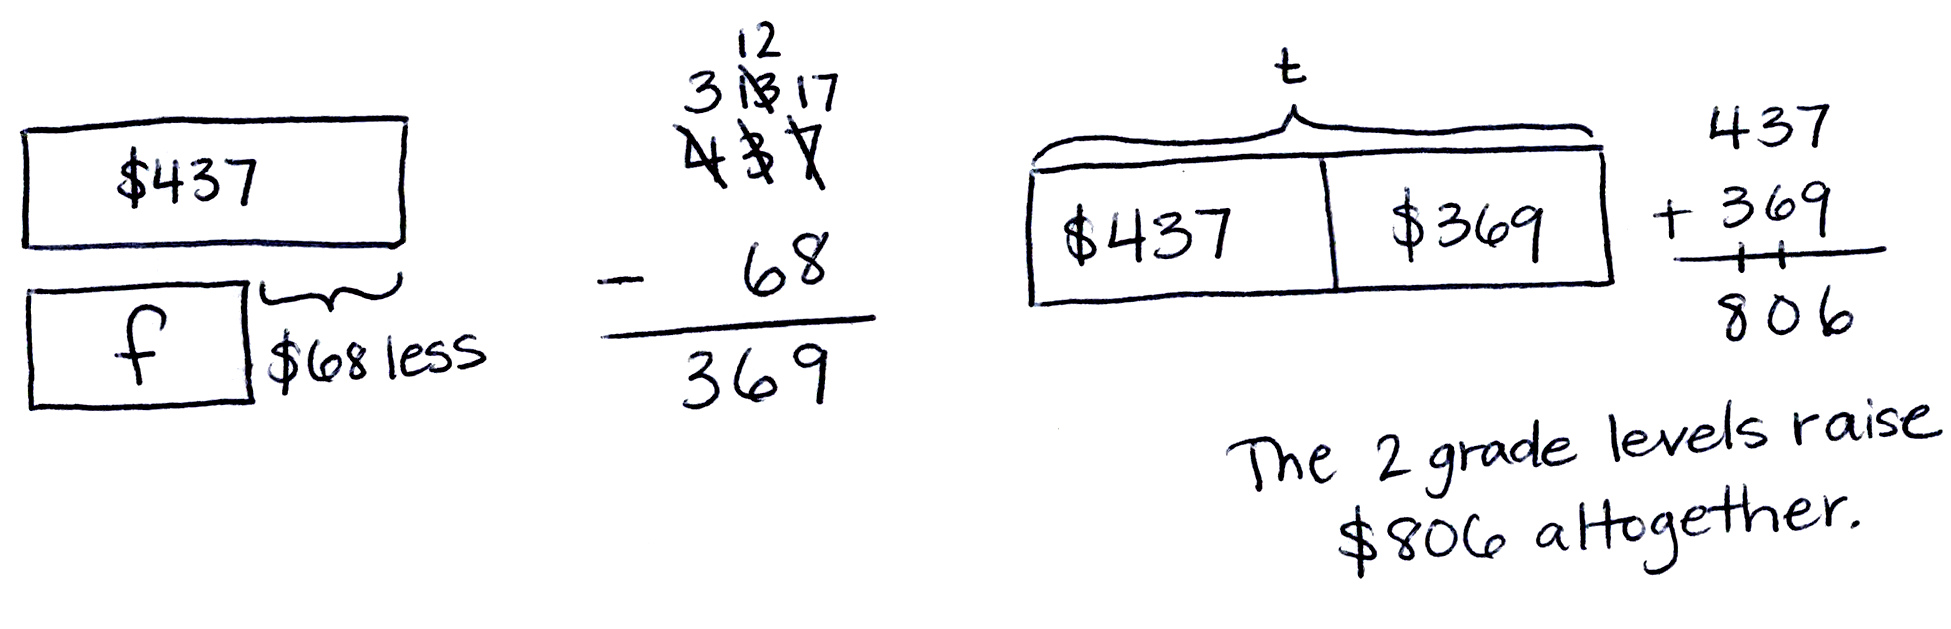 $437
f
$68 less
12
3 13 17
437
- 68
369
t
$437 $369
437
+ 369
806
The 2 grade levels raise
$806 altogether.